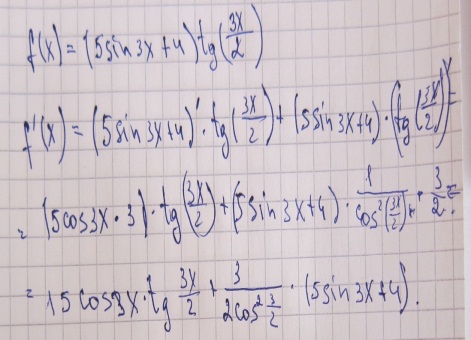 f(x) = (5sin3x+4)tg(3x/2)
f'(x) = (5sin3x+4)'·tg(3x/2)+(5sin3x+4)·(tg(3x/2))'=
= (5cos3x·3)·tg(3x/2)+(5sin3x+4)·1/cos²(3x/2)·3/2=
= 15cos3x·tg 3x/2 + 3/2cos² 3/2 ·(5sin3x+4).